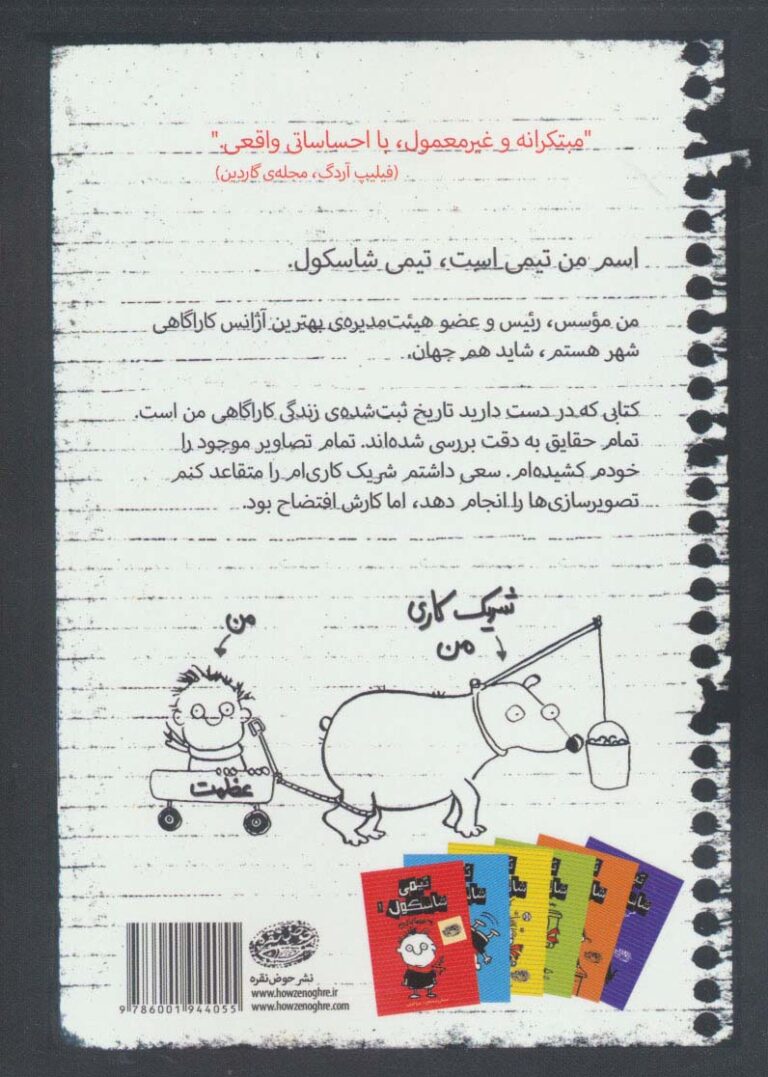 "مبتکرانه و غیرمعمول، با احساساتی واقعی."
(فیلیپ آردگ، مجله‌ی گاردین)
اسم من تیمی است، تیمی شاسکول.
من مؤسس، رئیس و عضو هیئت‌مدیره‌ی بهترین آژانس کاراگاهی
شهر هستم، شاید هم جهان.
کتابی که در دست دارید تاریخ ثبت‌شده‌ی زندگی کاراگاهی من است.
تمام حقایق به دقت بررسی شده‌اند. تمام تصاویر موجود را
خودم کشیده‌ام. سعی داشتم شریک کاری‌ام را متقاعد کنم
تصویرسازی‌ها را انجام دهد، اما کارش افتضاح بود.
شریک کاری
من
من
عظمت
تیمی
شاسکول ۱
نشر حوض نقره
www.howzenoghre.ir
www.howzenoghre.com
9 786001 944055